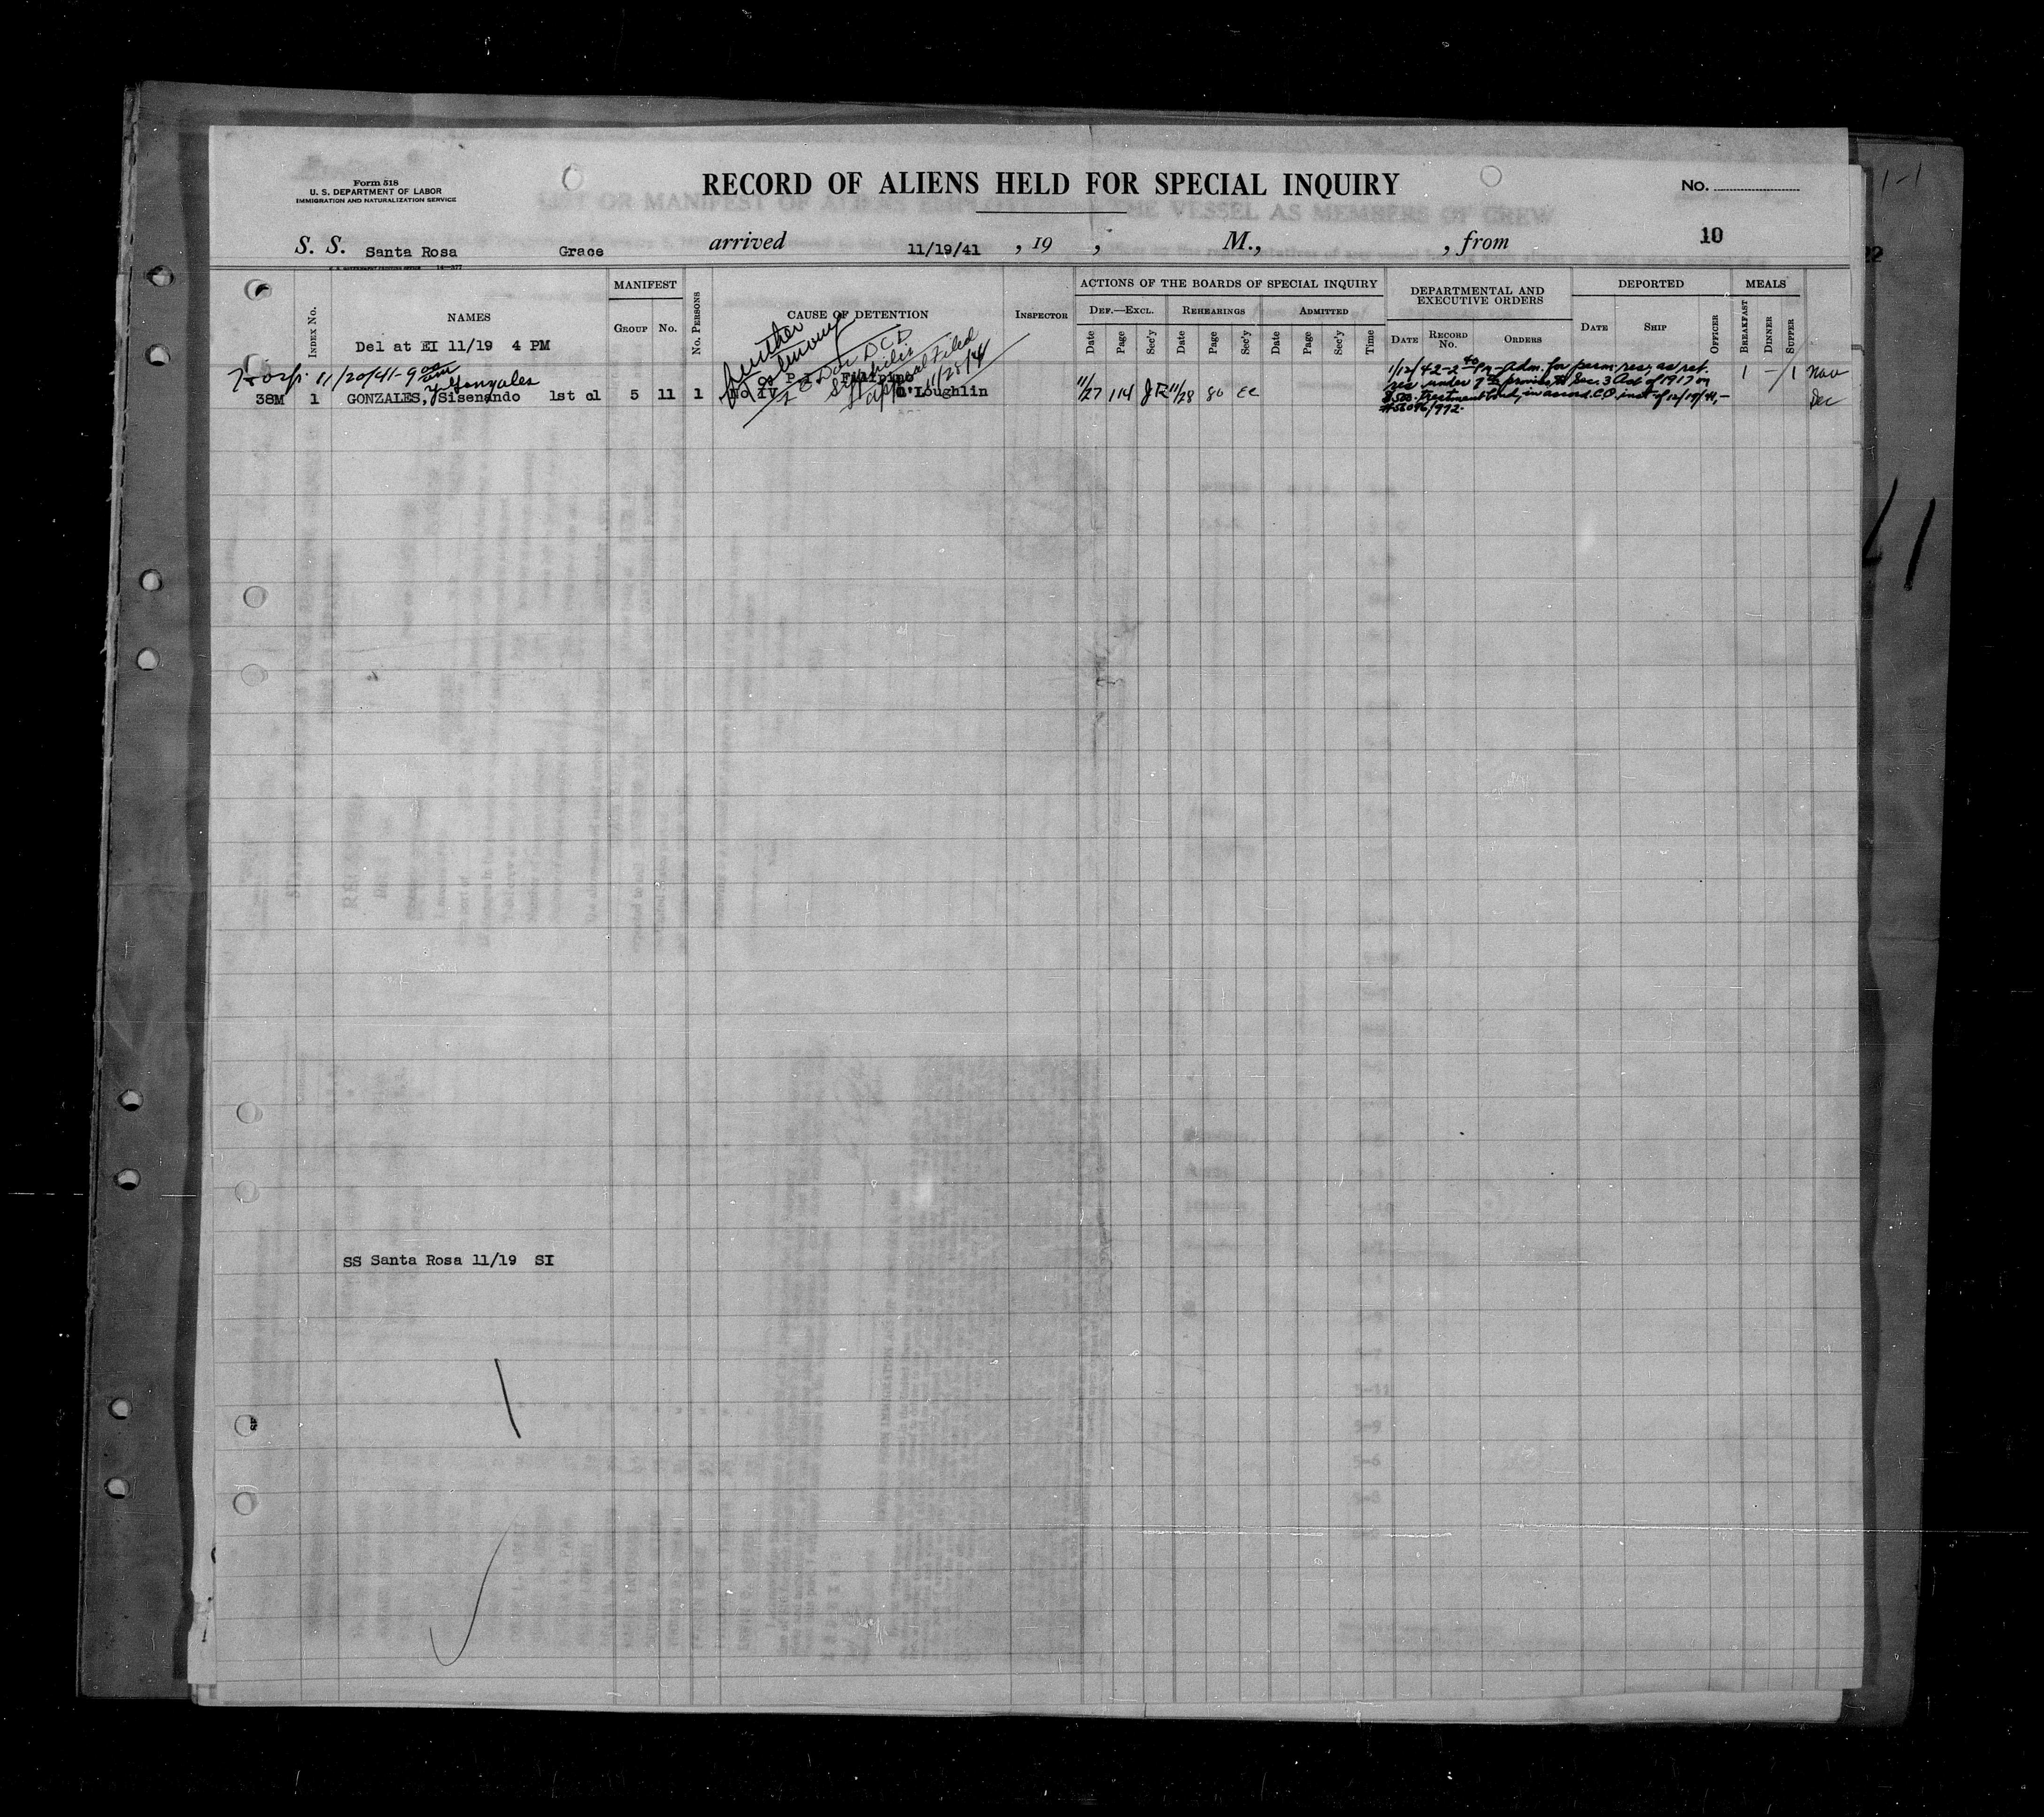 Form 518
U. S. DEPARTMENT OF LABOR
IMMIGRATION AND NATURALIZATION SERVICE
RECORD OF ALIENS HELD FOR SPECIAL INQUIRY
No.
10
S. S. Santa Rosa Grace arrived 11/19/41 , 19 , M., , from
Index No.
NAMES
MANIFEST
Group
No.
No. Persons
CAUSE OF DETENTION
Inspector
ACTIONS OF THE BOARDS OF SPECIAL INQUIRY
Def.—Excl.
Rehearings
Admitted
Date Page Sec'y Date Page Sec'y Date Page Sec'y Time
DEPARTMENTAL AND EXECUTIVE ORDERS
Date
Record No.
Orders
DEPORTED
Date
Ship
Officer
MEALS
Breakfast
Dinner
Supper
Del at EI 11/19 4 PM
To Hosp. 11/20/41-9 00 am
Gonzales
38M 1 GONZALES, Sisenando 1st cl 5 11 1
further testimony
P I Filipino
No IV O'Loughlin
Syphilis
appeal filed 11/28/41
11/27 114 JR 11/28 80 EC
1/12/42-2 40 Pm-Adm. for perm. res. as ret.
res. under 7th proviso to Sec. 3 Act of 1917 on
$500. treatment bond, in accord. C.O. inst. of 12/19/41,-
#56096/972.
1 - 1 Nov
Dec
SS Santa Rosa 11/19 SI